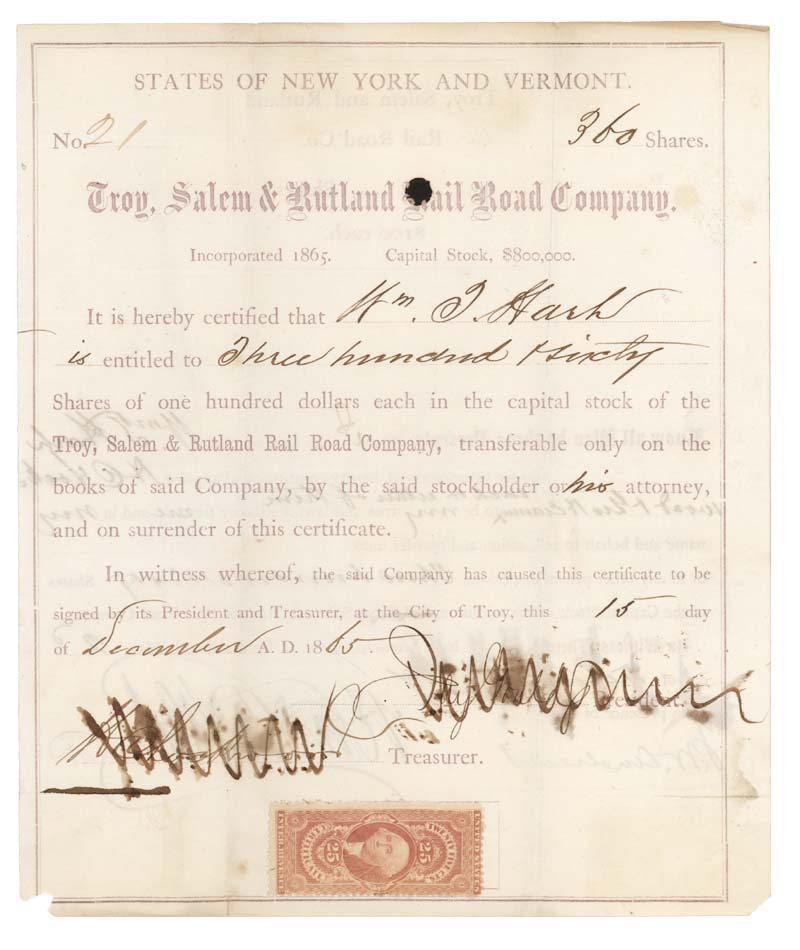 STATES OF NEW YORK AND VERMONT.
No. 21 360 Shares.
Troy, Salem & Rutland Rail Road Company.
Incorporated 1865. Capital Stock, $800,000.
It is hereby certified that Wm. T. Hart
is entitled to Three hundred & sixty
Shares of one hundred dollars each in the capital stock of the
Troy, Salem & Rutland Rail Road Company, transferable only on the
books of said Company, by the said stockholder or his attorney,
and on surrender of this certificate.
In witness whereof, the said Company has caused this certificate to be
signed by its President and Treasurer, at the City of Troy, this 15 day
of December A. D. 1865.
President.
Treasurer.
25 25